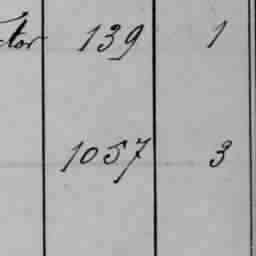 ctor 139 1
1057 3